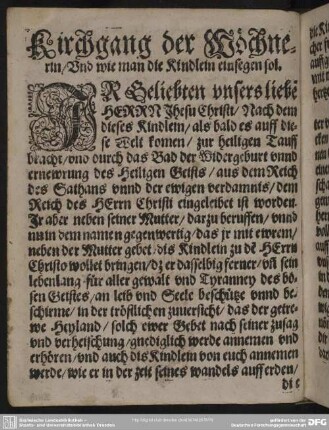 Kirchgang der Wöchne-
rin/ Vnd wie man die Kindlein einsegen sol.
IR Geliebten vnsers liebẽ
HERRN Jhesu Christi/ Nach dem
dieses Kindlein/ als bald es auff die-
se Welt komen/ zur heiligen Tauff
bracht/ vnd durch das Bad der Widergeburt vnnd
ernewrung des Heiligen Geists/ aus dem Reich
des Sathans vnnd der ewigen verdamnis/ dem
Reich des HErrn Christi eingeleibet ist worden.
Jr aber neben seiner Mutter/ darzu beruffen/ vnnd
nu in dem namen gegenwertig/ das jr mit ewrem/
neben der Mutter gebet/ dis Kindlein zu dẽ HErrn
Christo wollet bringen/ dz er dasselbig ferner/ vñ sein
lebenlang für aller gewalt vnd Tyranney des bö-
sen Geistes/ an leib vnd Seele beschütze vnnd be-
schirme/ in der tröstlichen zuuersicht/ das der getre-
we Heyland/ solch ewer Gebet nach seiner zusag
vnd verheischung/ gnediglich werde annemen vnd
erhören/ vnd auch dis Kindlein von euch annemen
werde/ wie er in der zeit seines wandels auff erden/
die